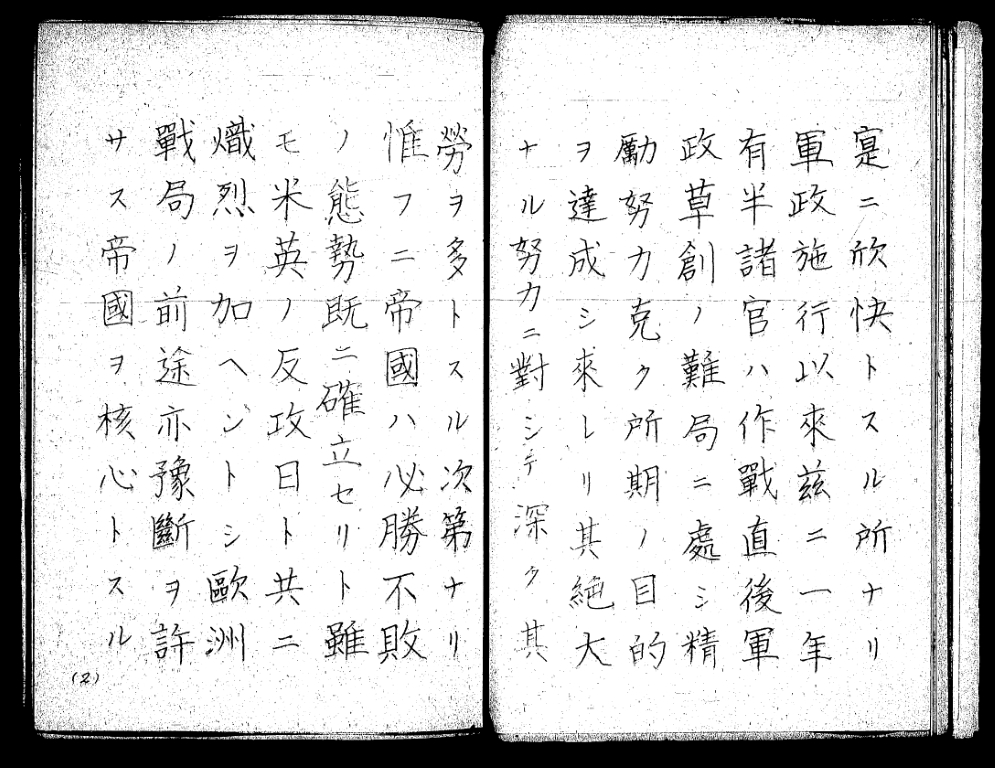 寔ニ欣快トスル所ナリ
軍政施行以來茲ニ一年
有半諸官ハ作戰直後軍
政草創ノ難局ニ處シ精
勵努力克ク所期ノ目的
ヲ達成シ來レリ其絶大
ナル努力ニ對シテ深ク其
勞ヲ多トスル次第ナリ
惟フニ帝國ハ必勝不敗
ノ態勢既ニ確立セリト雖
モ米英ノ反攻日ト共ニ
熾烈ヲ加ヘントシ歐洲
戰局ノ前途亦豫斷ヲ許
サス帝國ヲ核心トスル
(2)